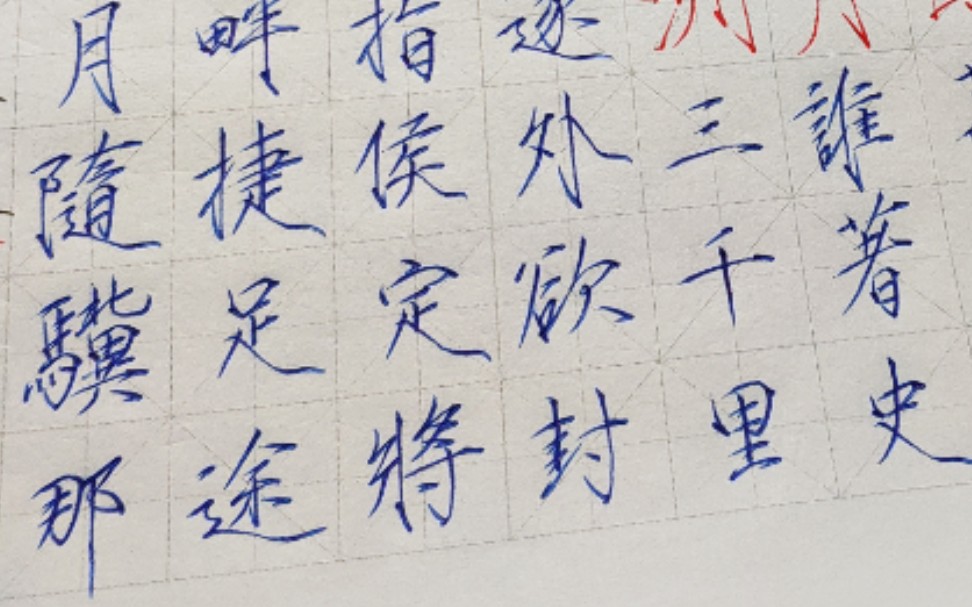 誰著史
三千里
逐外欲封
指侯定將
畔捷足途
月隨驥那